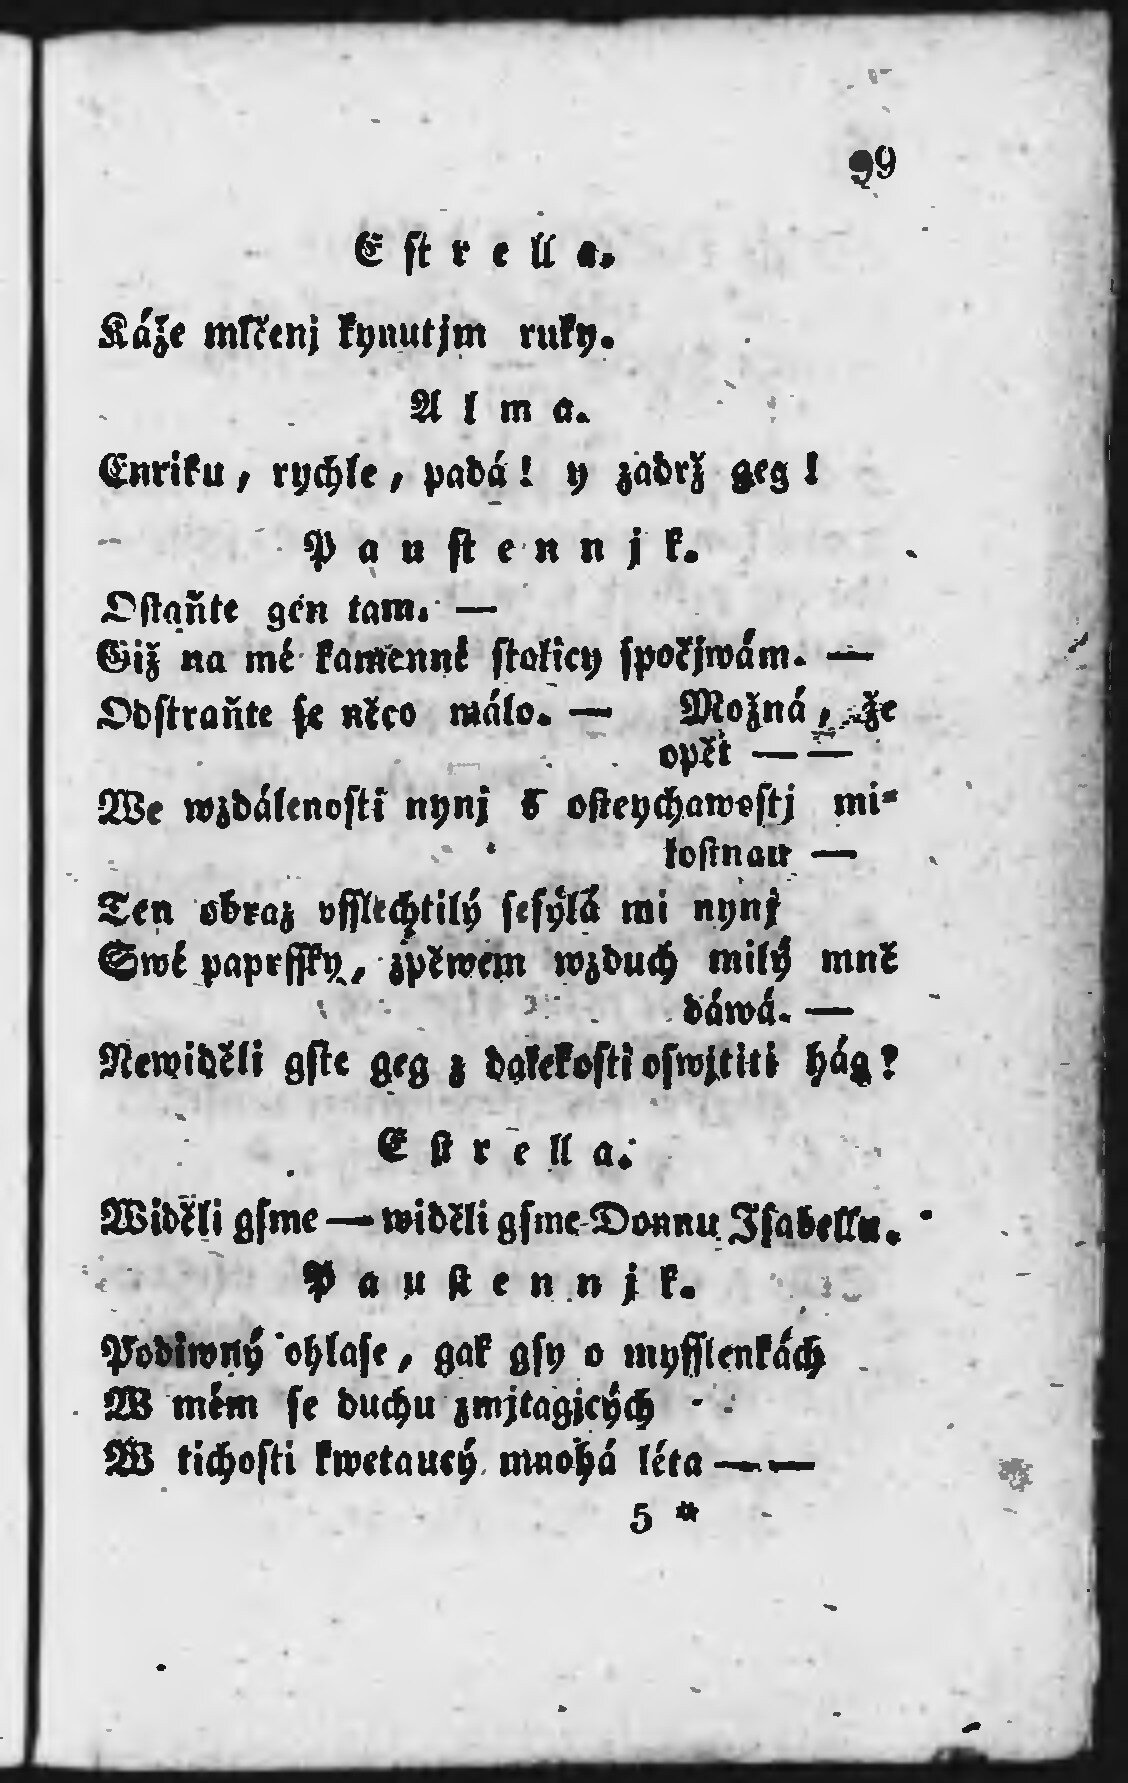 99
Estrella.
Káže mlčenj kynutjm ruky.
Alma.
Enriku, rychle, padá! y zadrž geg!
Paustennjk.
Ostaňte gen tam. —
Giž na mé kamenné stolicy spočjwám. —
Odstraňte se něco málo. — Možná, že
opět — —
We wzdálenosti nynj s osteychawostj mi-
lostnau —
Ten obraz vsslechtilý sesýlá mi nynj
Swé paprssky, zpěwem wzduch milý mně
dáwá. —
Newiděli gste geg z dalekosti oswjtiti hág?
Estrella.
Widěli gsme — widěli gsme Donnu Isabellu.
Paustennjk.
Podiwný ohlase, gak gsy o mysslenkách
W mém se duchu zmjtagjcých
W tichosti kwetaucý mnohá léta — —
5 *